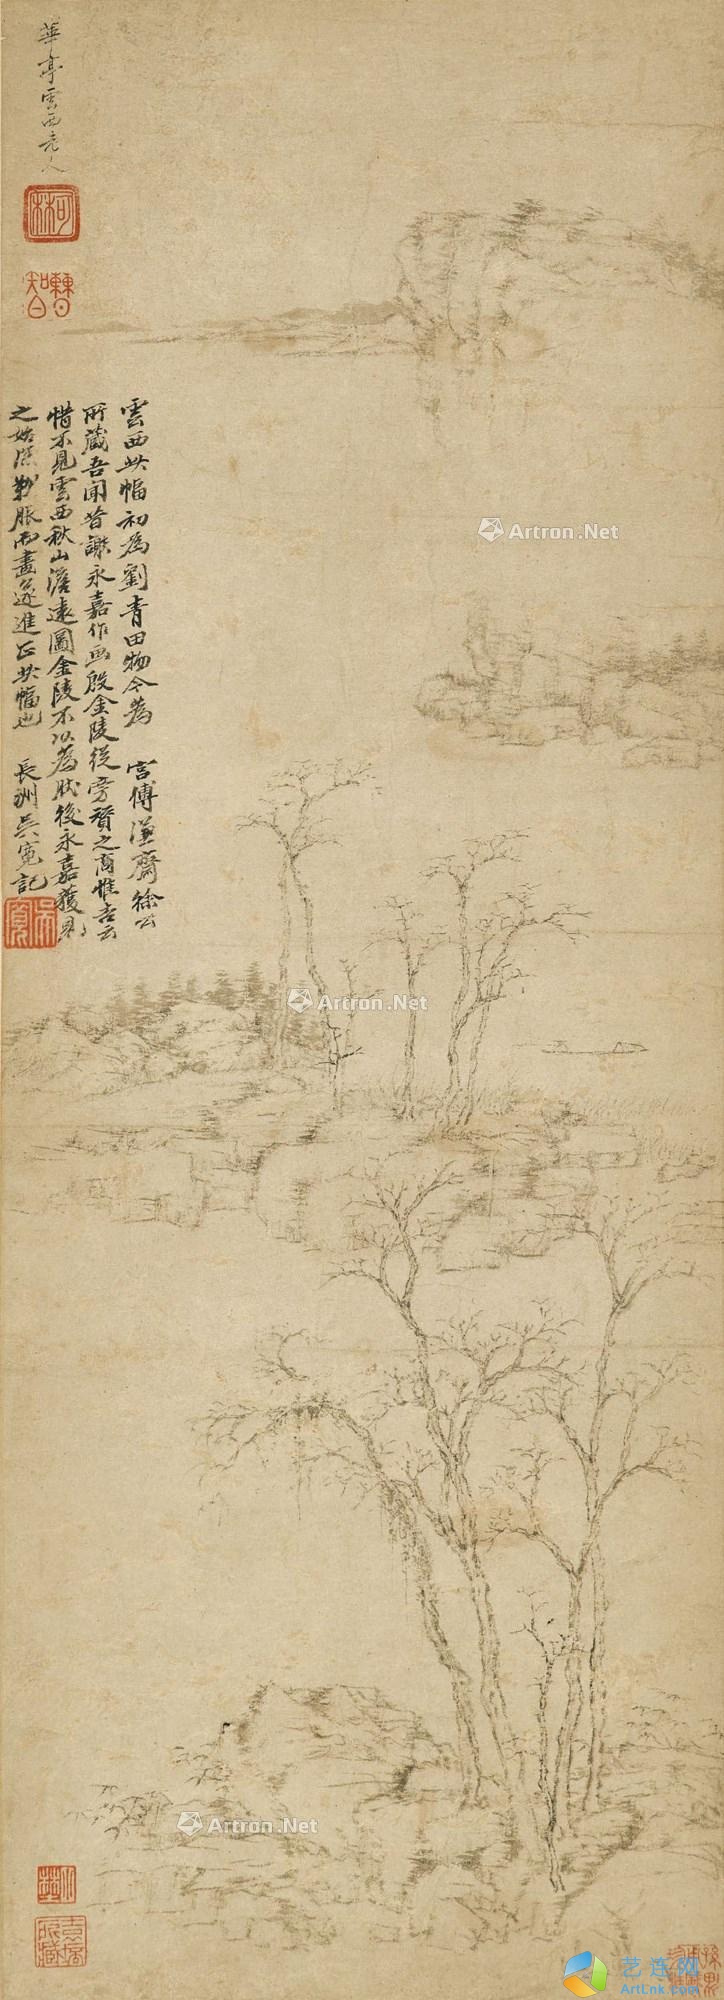 華亭雲西老人
雲西此幅初為劉青田物今為　宮傅謙齋徐公
所藏吾聞昔謝永嘉作画殷金陵從旁贊之商惟吉云
惜不見雲西秋山澹遠圖金陵不以為狀後永嘉獲見
之始深*服而畫遂進正此幅也　長洲吳寬記
柯林
曹知白
吳寬
Artron.Net
Artron.Net
Artron.Net
艺连网
ArtLnk.com